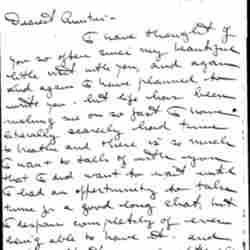 Dearest Auntie -
I have thought of
you so often since my beautiful
little visit with you, and again
and again I have planned to
write you - but life has been
rushing me on so fast I have
literally scarcely had time
to breathe and there is so much
I want to talk of with you
that I did want to wait until
I had an opportunity to take
time for a good long chat, but
I despair completely of ever
being able to have it - and